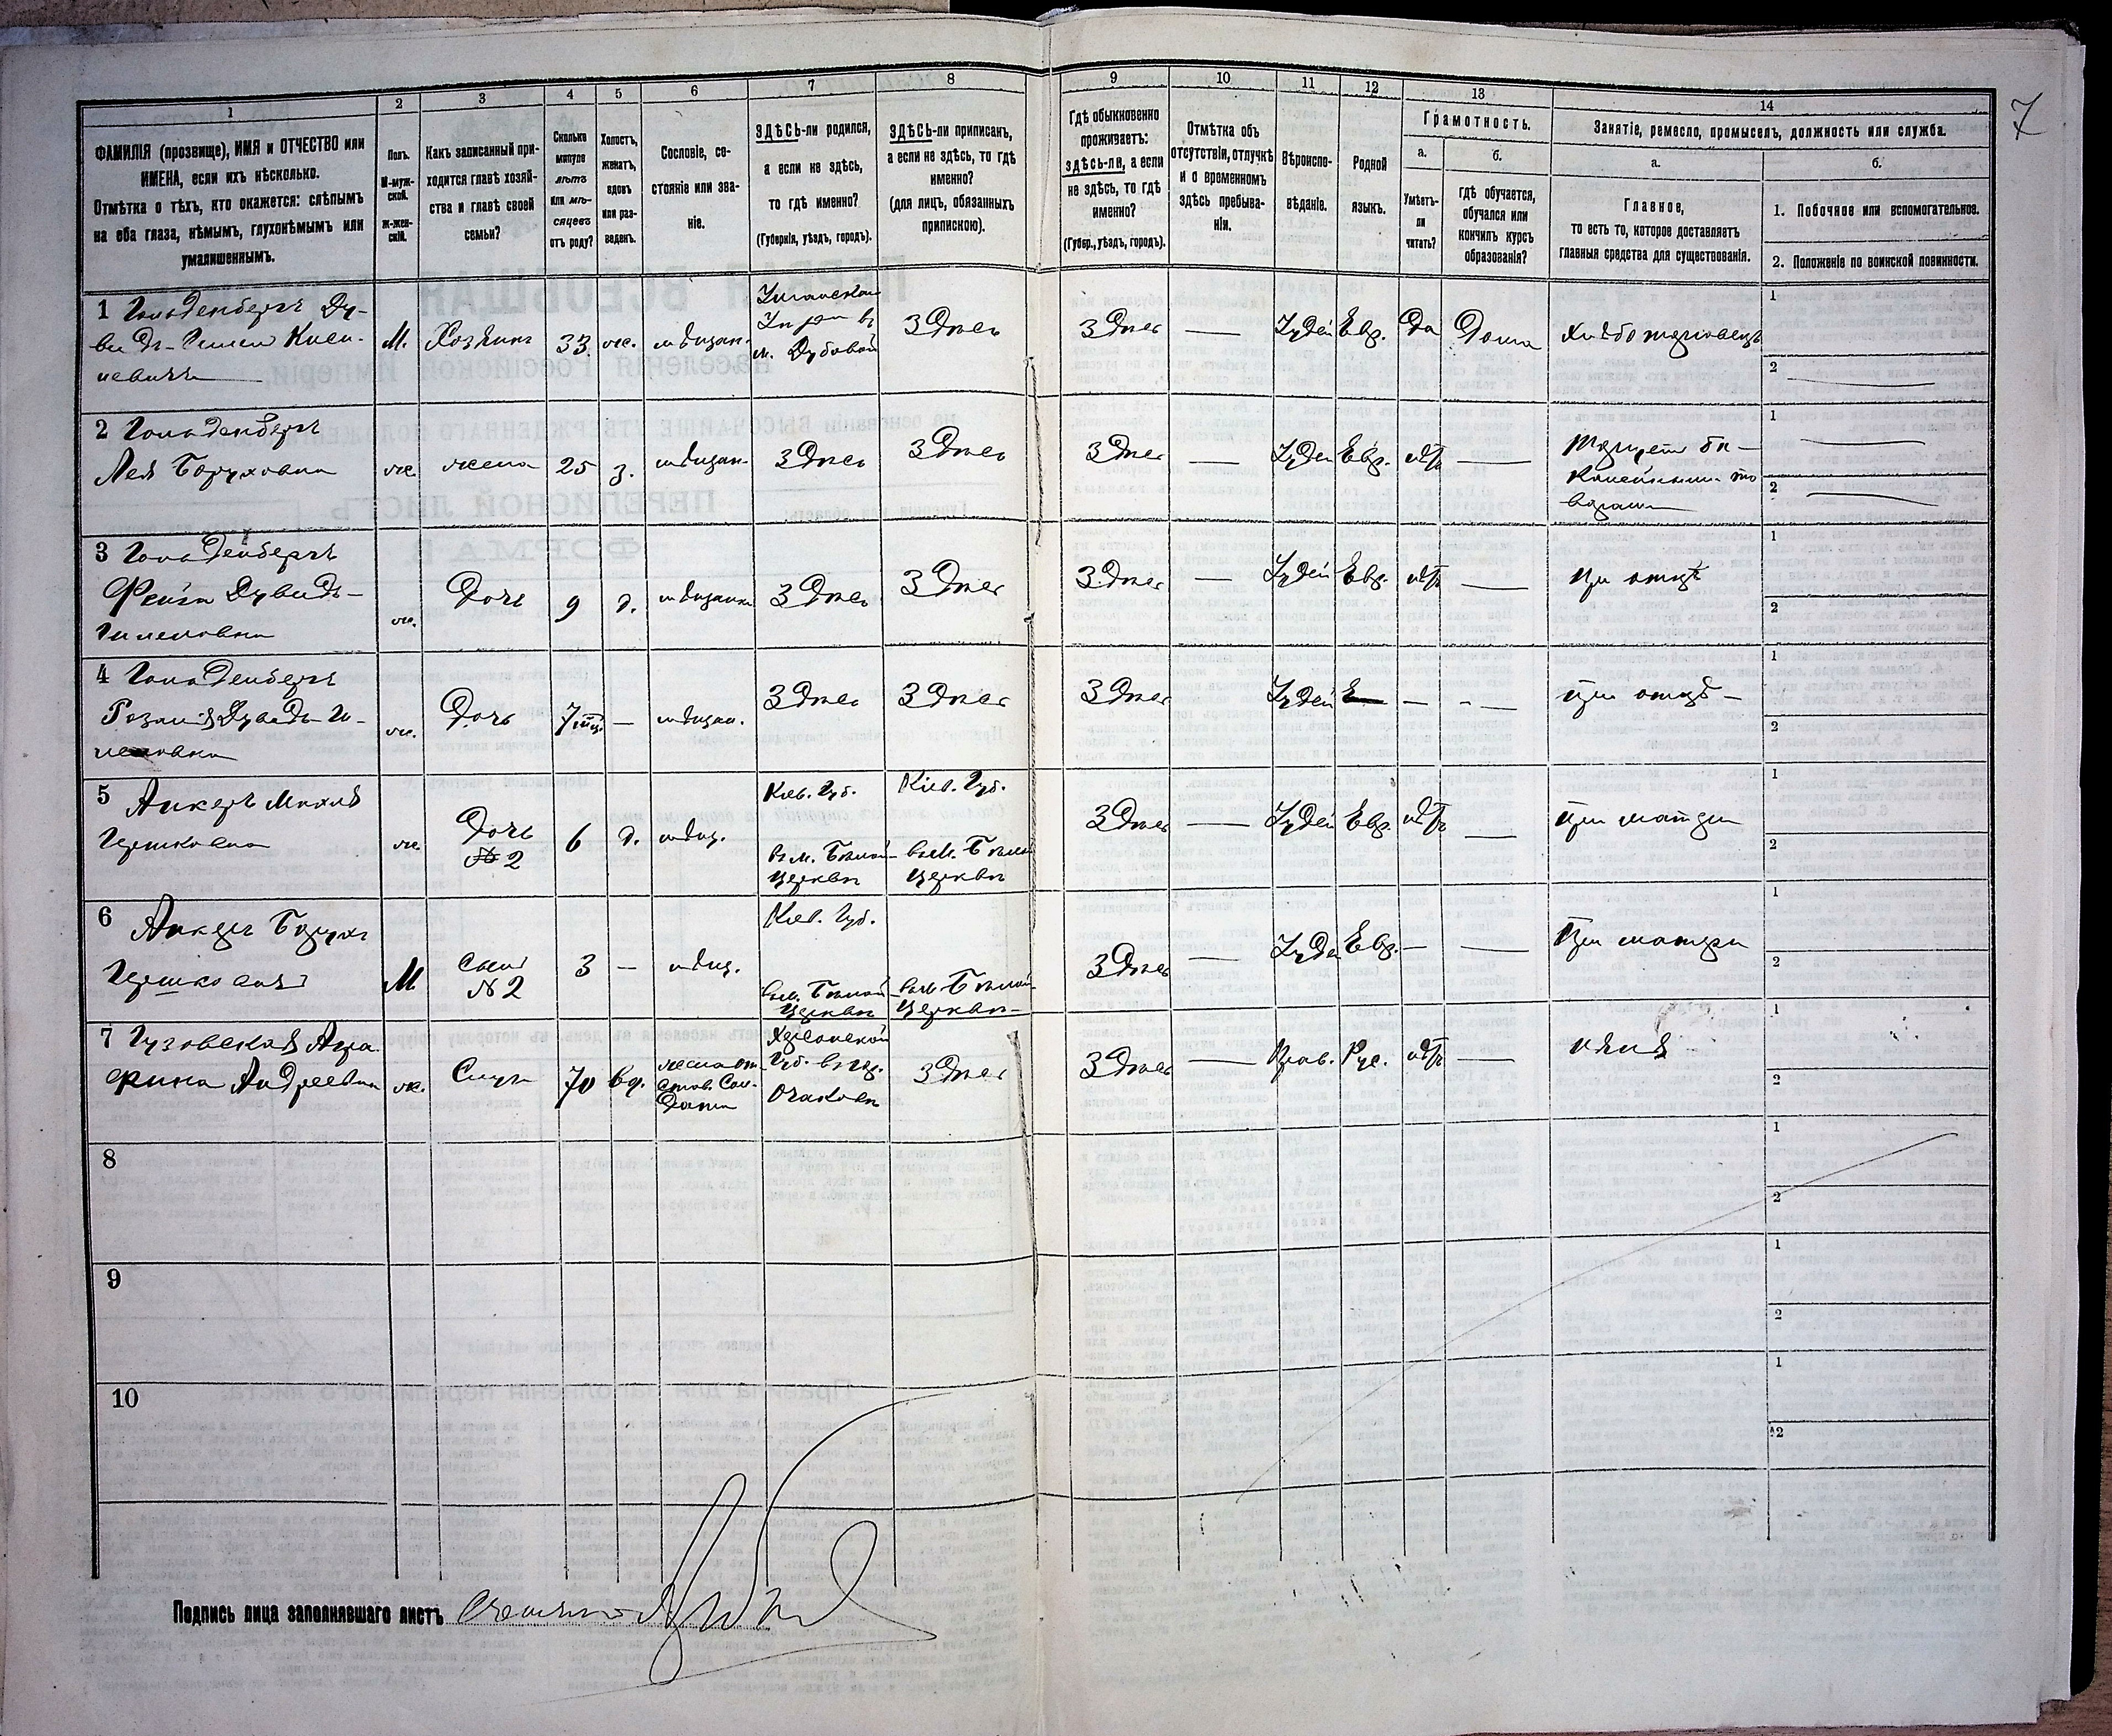 7
1 2 3 4 5 6 7 8 9 10 11 12 13 14
ФАМИЛІЯ (прозвище), ИМЯ и ОТЧЕСТВО или
ИМЕНА, если ихъ нѣсколько.
Отмѣтка о тѣхъ, кто окажется: слѣпымъ
на оба глаза, нѣмымъ, глухонѣмымъ или
умалишеннымъ.
Полъ.
М-муж-
ской.
Ж-жен-
скій.
Какъ записанный при-
ходится главѣ хозяй-
ства и главѣ своей
семьи?
Сколько
минуло
лѣтъ
или мѣ-
сяцевъ
отъ роду?
Холостъ,
женатъ,
вдовъ
или раз-
веденъ.
Сословіе, со-
стояніе или зва-
ніе.
ЗДѢСЬ-ли родился,
а если не здѣсь,
то гдѣ именно?
(Губернія, уѣздъ, городъ).
ЗДѢСЬ-ли приписанъ,
а если не здѣсь, то гдѣ
именно?
(для лицъ, обязанныхъ
припискою).
Гдѣ обыкновенно
проживаетъ:
здѣсь-ли, а если
не здѣсь, то гдѣ
именно?
(Губер., уѣздъ, городъ).
Отмѣтка объ
отсутствіи, отлучкѣ
и о временномъ
здѣсь пребыва-
ніи.
Вѣроиспо-
вѣданіе.
Родной
языкъ.
Грамотность.
а.
Умѣетъ-
ли
читать?
б.
Гдѣ обучается,
обучался или
кончилъ курсъ
образованія?
Занятіе, ремесло, промыселъ, должность или служба.
а.
Главное,
то есть то, которое доставляетъ
главныя средства для существованія.
б.
1. Побочное или вспомогательное.
2. Положеніе по воинской повинности.
1 Гольденбергъ Ду-
М. Хозяинъ 33 м. Дубовой Здѣсь Здѣсь Іудей Евр. Да Дома Хлѣботорговецъ
1
2
2 Гольденбергъ
Лея Боруховна ж. жена 25 з. мѣщан. Здѣсь Здѣсь Здѣсь Іудей Евр. нѣтъ
Торгуетъ ба-
калейными то
варами
1
2
3 Гольденбергъ
Фейга Дувидъ-
Гилеловна
ж. Дочь 9 д. мѣщанка Здѣсь Здѣсь Здѣсь Іудей Евр. нѣтъ при отцѣ
1
2
4 Гольденбергъ
ж. Дочь 7 мѣщан. Здѣсь Здѣсь Здѣсь Іудей при отцѣ
1
2
5 Анкеръ
Гершковна ж. Дочь
№ 2
6 д. мѣщ.
Кіев. Губ.
въ м. Бѣлой
Церкви
Кіев. Губ.
въ м. Бѣлой
Церкви
Здѣсь Іудей Евр. нѣтъ при матери
1
2
6 Анкеръ Борухъ
Гершковичъ М Сынъ
№ 2
3 мѣщ.
Кіев. Губ.
въ м. Бѣлой
Церкви
въ м. Бѣлой
Церкви
Здѣсь Іудей Евр. При матери
1
2
7 Гузовская Агра
фина Андреевна ж. 70 вд.
жена от
став. Сол-
дата
Херсонской
Губ. въ гор.
Очаковѣ
Здѣсь Здѣсь Прав. Рус. нѣтъ няня
1
2
8
1
2
9
1
2
10
1
2
Подпись лица заполнявшаго листъ